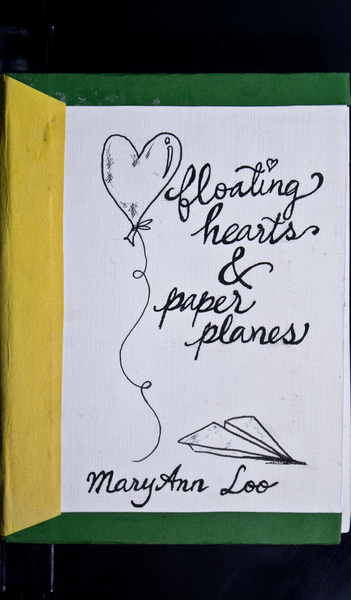 floating
hearts
&
paper
planes
MaryAnn Loo